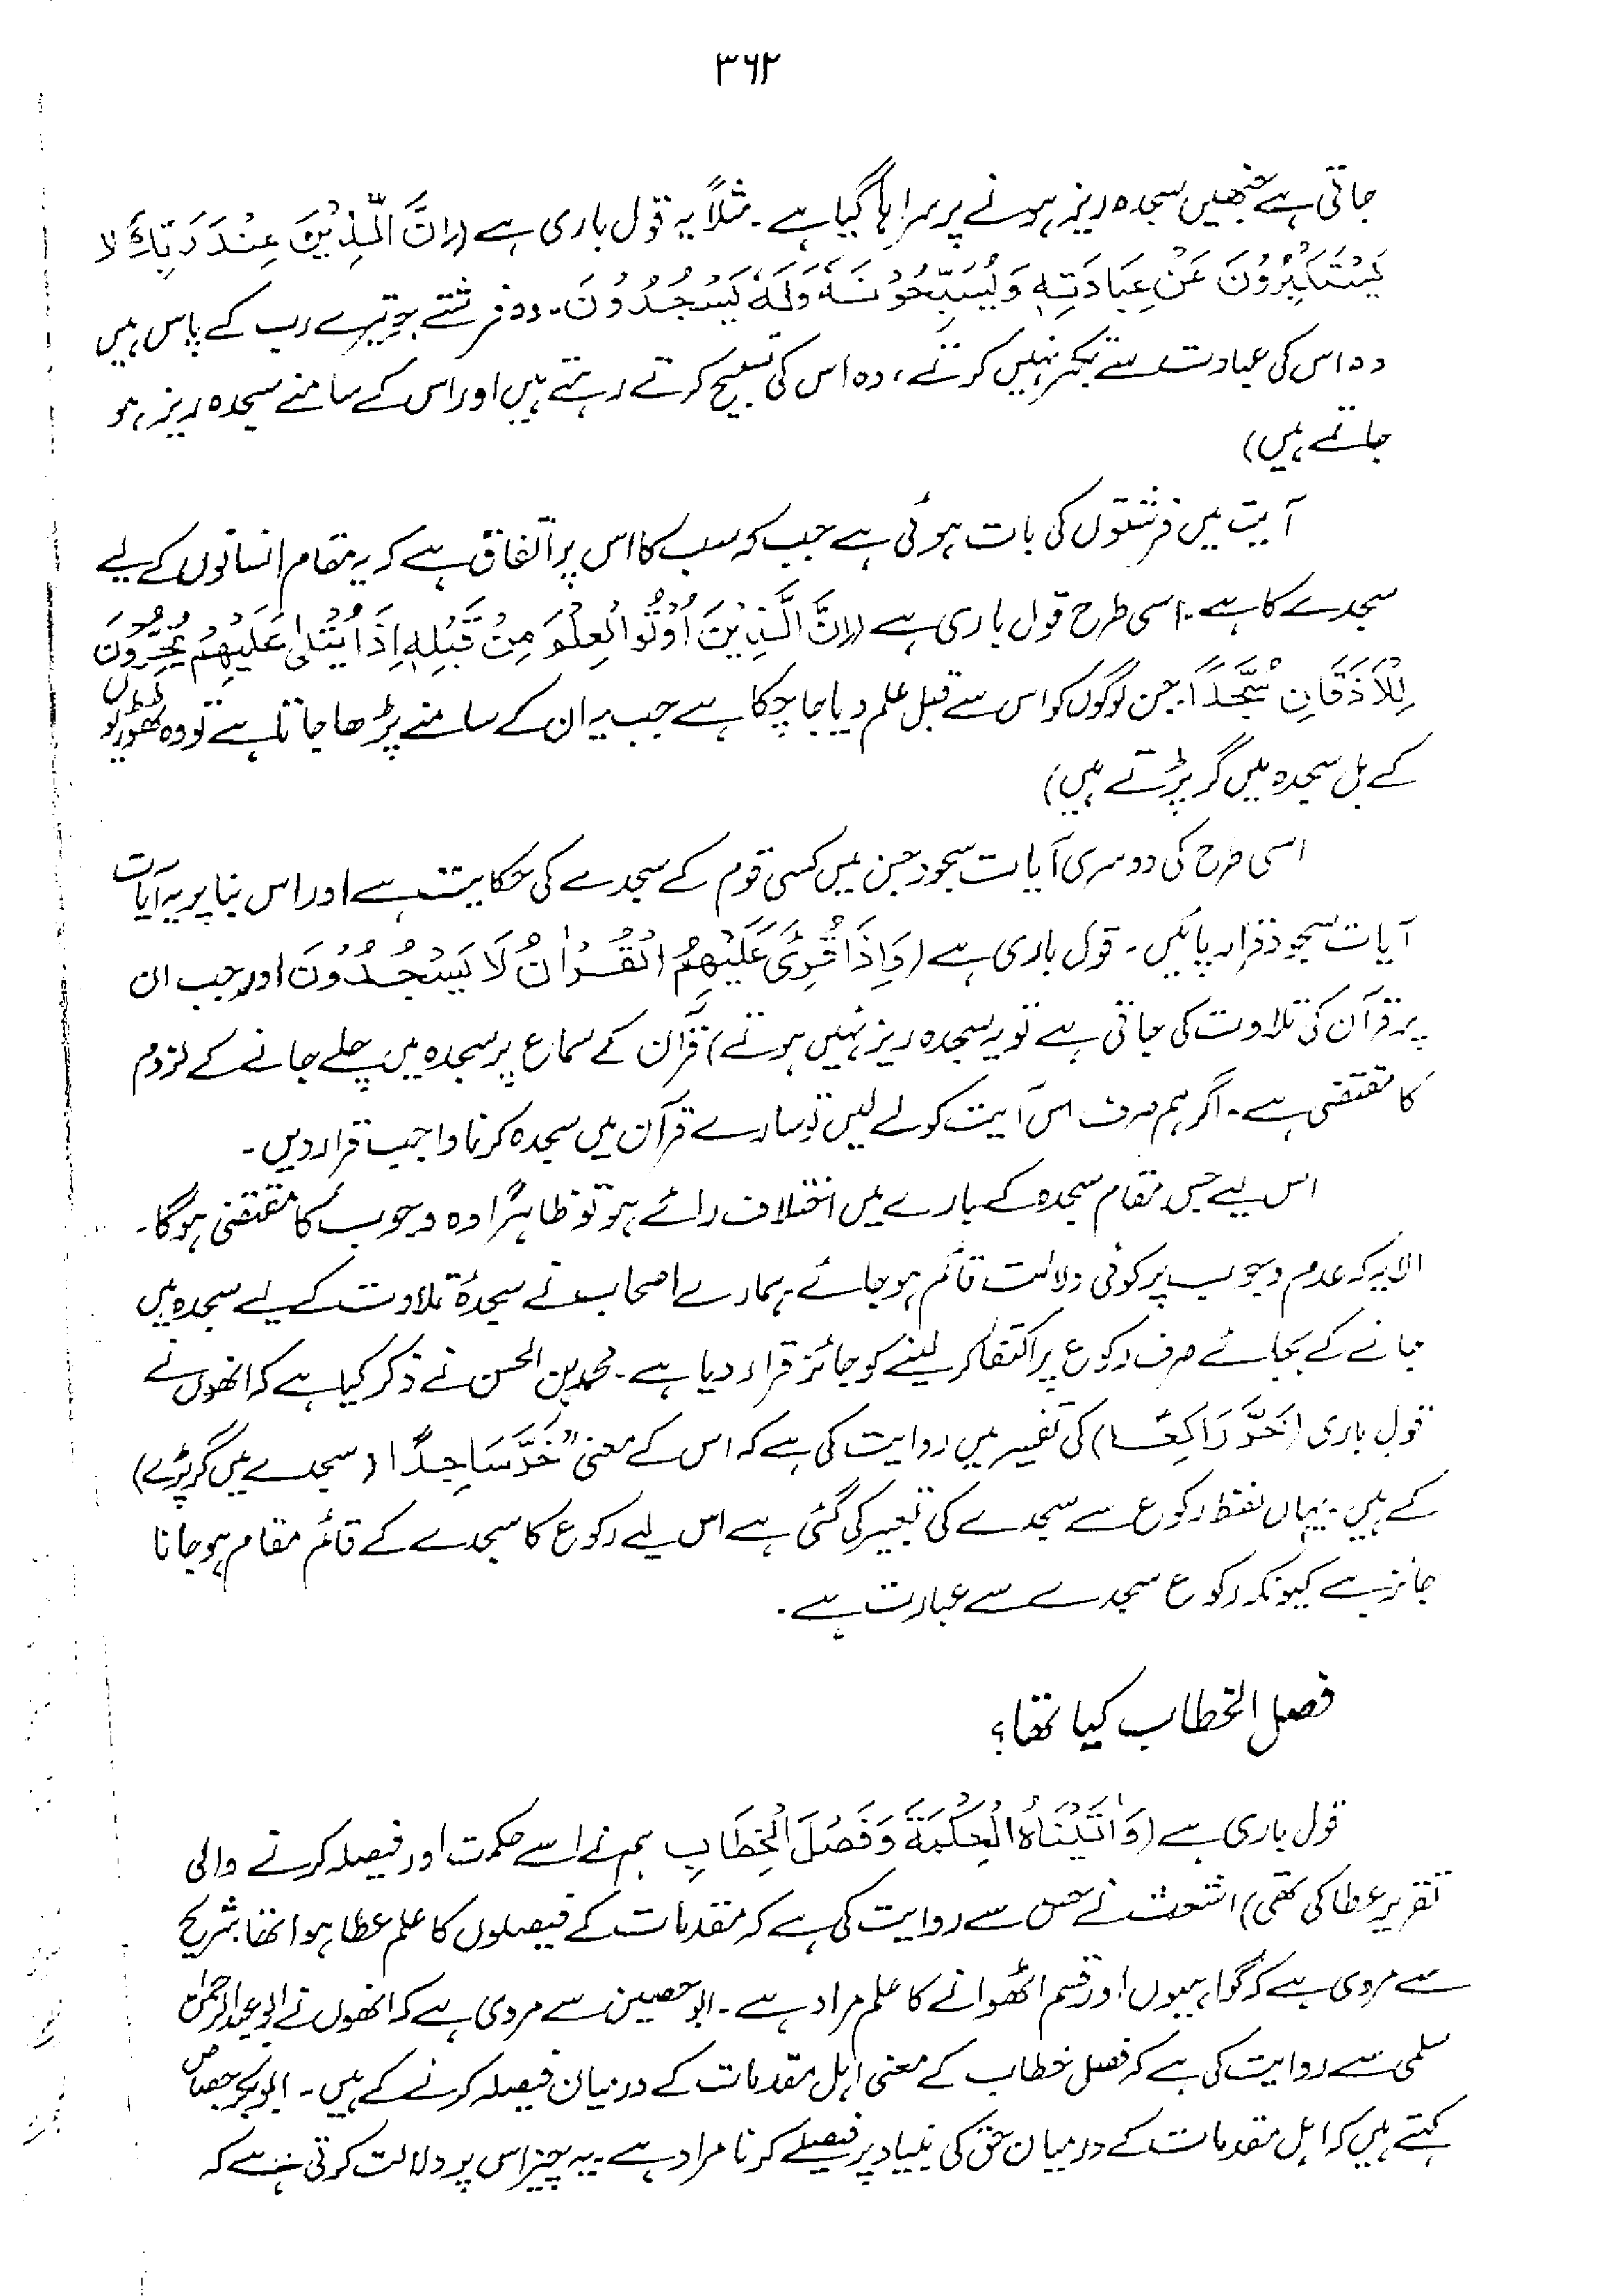 ۳۶۲
جاتی ہے جنھیں سجدہ ریز ہونے پر سراہا گیا ہے۔ مثلاً یہ قول باری ہے (اِنَّ الَّذِیْنَ عِنْدَ رَبِّکَ لَا
یَسْتَکْبِرُوْنَ عَنْ عِبَادَتِہٖ وَیُسَبِّحُوْنَہٗ وَلَہٗ یَسْجُدُوْنَ۔ وہ فرشتے جو تیرے رب کے پاس ہیں
وہ اس کی عبادت سے تکبر نہیں کرتے، وہ اس کی تسبیح کرتے رہتے ہیں اور اس کے سامنے سجدہ ریز ہو
جاتے ہیں)
آیت میں فرشتوں کی بات ہوئی ہے جب کہ سب کا اس پر اتفاق ہے کہ یہ مقام انسانوں کے لیے
سجدے کا ہے۔ اسی طرح قول باری ہے (اِنَّ الَّذِیْنَ اُوْتُوا الْعِلْمَ مِنْ قَبْلِہٖ اِذَا یُتْلٰی عَلَیْھِمْ یَخِرُّوْنَ
لِلْاَذْقَانِ سُجَّدًا۔ جن لوگوں کو اس سے قبل علم دیا جا چکا ہے جب یہ ان کے سامنے پڑھا جاتا ہے تو وہ ٹھوڑیوں
کے بل سجدہ میں گر پڑتے ہیں)
اسی طرح کی دوسری آیات سجود جن میں کسی قوم کے سجدے کی حکایت ہے اور اس بنا پر یہ آیات
آیات سجود قرار پائیں۔ قول باری ہے (وَاِذَا قُرِیَٔ عَلَیْھِمُ الْقُرْاٰنُ لَا یَسْجُدُوْنَ اور جب ان
پر قرآن کی تلاوت کی جاتی ہے تو یہ سجدہ ریز نہیں ہوتے) قرآن کے سماع پر سجدہ میں چلے جانے کے لزوم
کا مقتضی ہے۔ اگر ہم صرف اس آیت کو لے لیں تو سارے قرآن میں سجدہ کرنا واجب قرار دیں۔
اس لیے جس مقام سجدہ کے بارے میں اختلاف رائے ہو تو ظاہراً وہ وجوب کا مقتضی ہوگا۔
الا یہ کہ عدم وجوب پر کوئی دلالت قائم ہو جائے۔ ہمارے اصحاب نے سجدۂ تلاوت کے لیے سجدہ میں
جانے کے بجائے صرف رکوع پر اکتفا کر لینے کو جائز قرار دیا ہے۔ محمد بن الحسن نے ذکر کیا ہے کہ انھوں نے
قول باری (خَرَّ رَاکِعًا) کی تفسیر میں روایت کی ہے کہ اس کے معنی "خَرَّ سَاجِدًا (سجدے میں گر پڑے)
کے ہیں۔ یہاں لفظ رکوع سے سجدے کی تعبیر کی گئی ہے اس لیے رکوع کا سجدے کے قائم مقام ہو جانا
جائز ہے کیونکہ رکوع سجدے سے عبارت ہے۔
فصل الخطاب کیا تھا؟
قول باری ہے (وَاٰتَیْنَاہُ الْحِکْمَۃَ وَفَصْلَ الْخِطَابِ ہم نے اسے حکمت اور فیصلہ کرنے والی
تقریر عطا کی تھی) اشعث نے حسن سے روایت کی ہے کہ مقدمات کے فیصلوں کا علم عطا ہوا تھا۔ شریح
سے مروی ہے کہ گواہیوں اور قسم اٹھوانے کا علم مراد ہے۔ ابو حصین سے مروی ہے کہ انھوں نے ابو عبدالرحمٰن
سلمی سے روایت کی ہے کہ فصل خطاب کے معنی اہل مقدمات کے درمیان فیصلہ کرنے کے ہیں۔ ابوبکر جصاص
کہتے ہیں کہ اہل مقدمات کے درمیان حق کی بنیاد پر فیصلے کرنا مراد ہے۔ یہ چیز اس پر دلالت کرتی ہے کہ